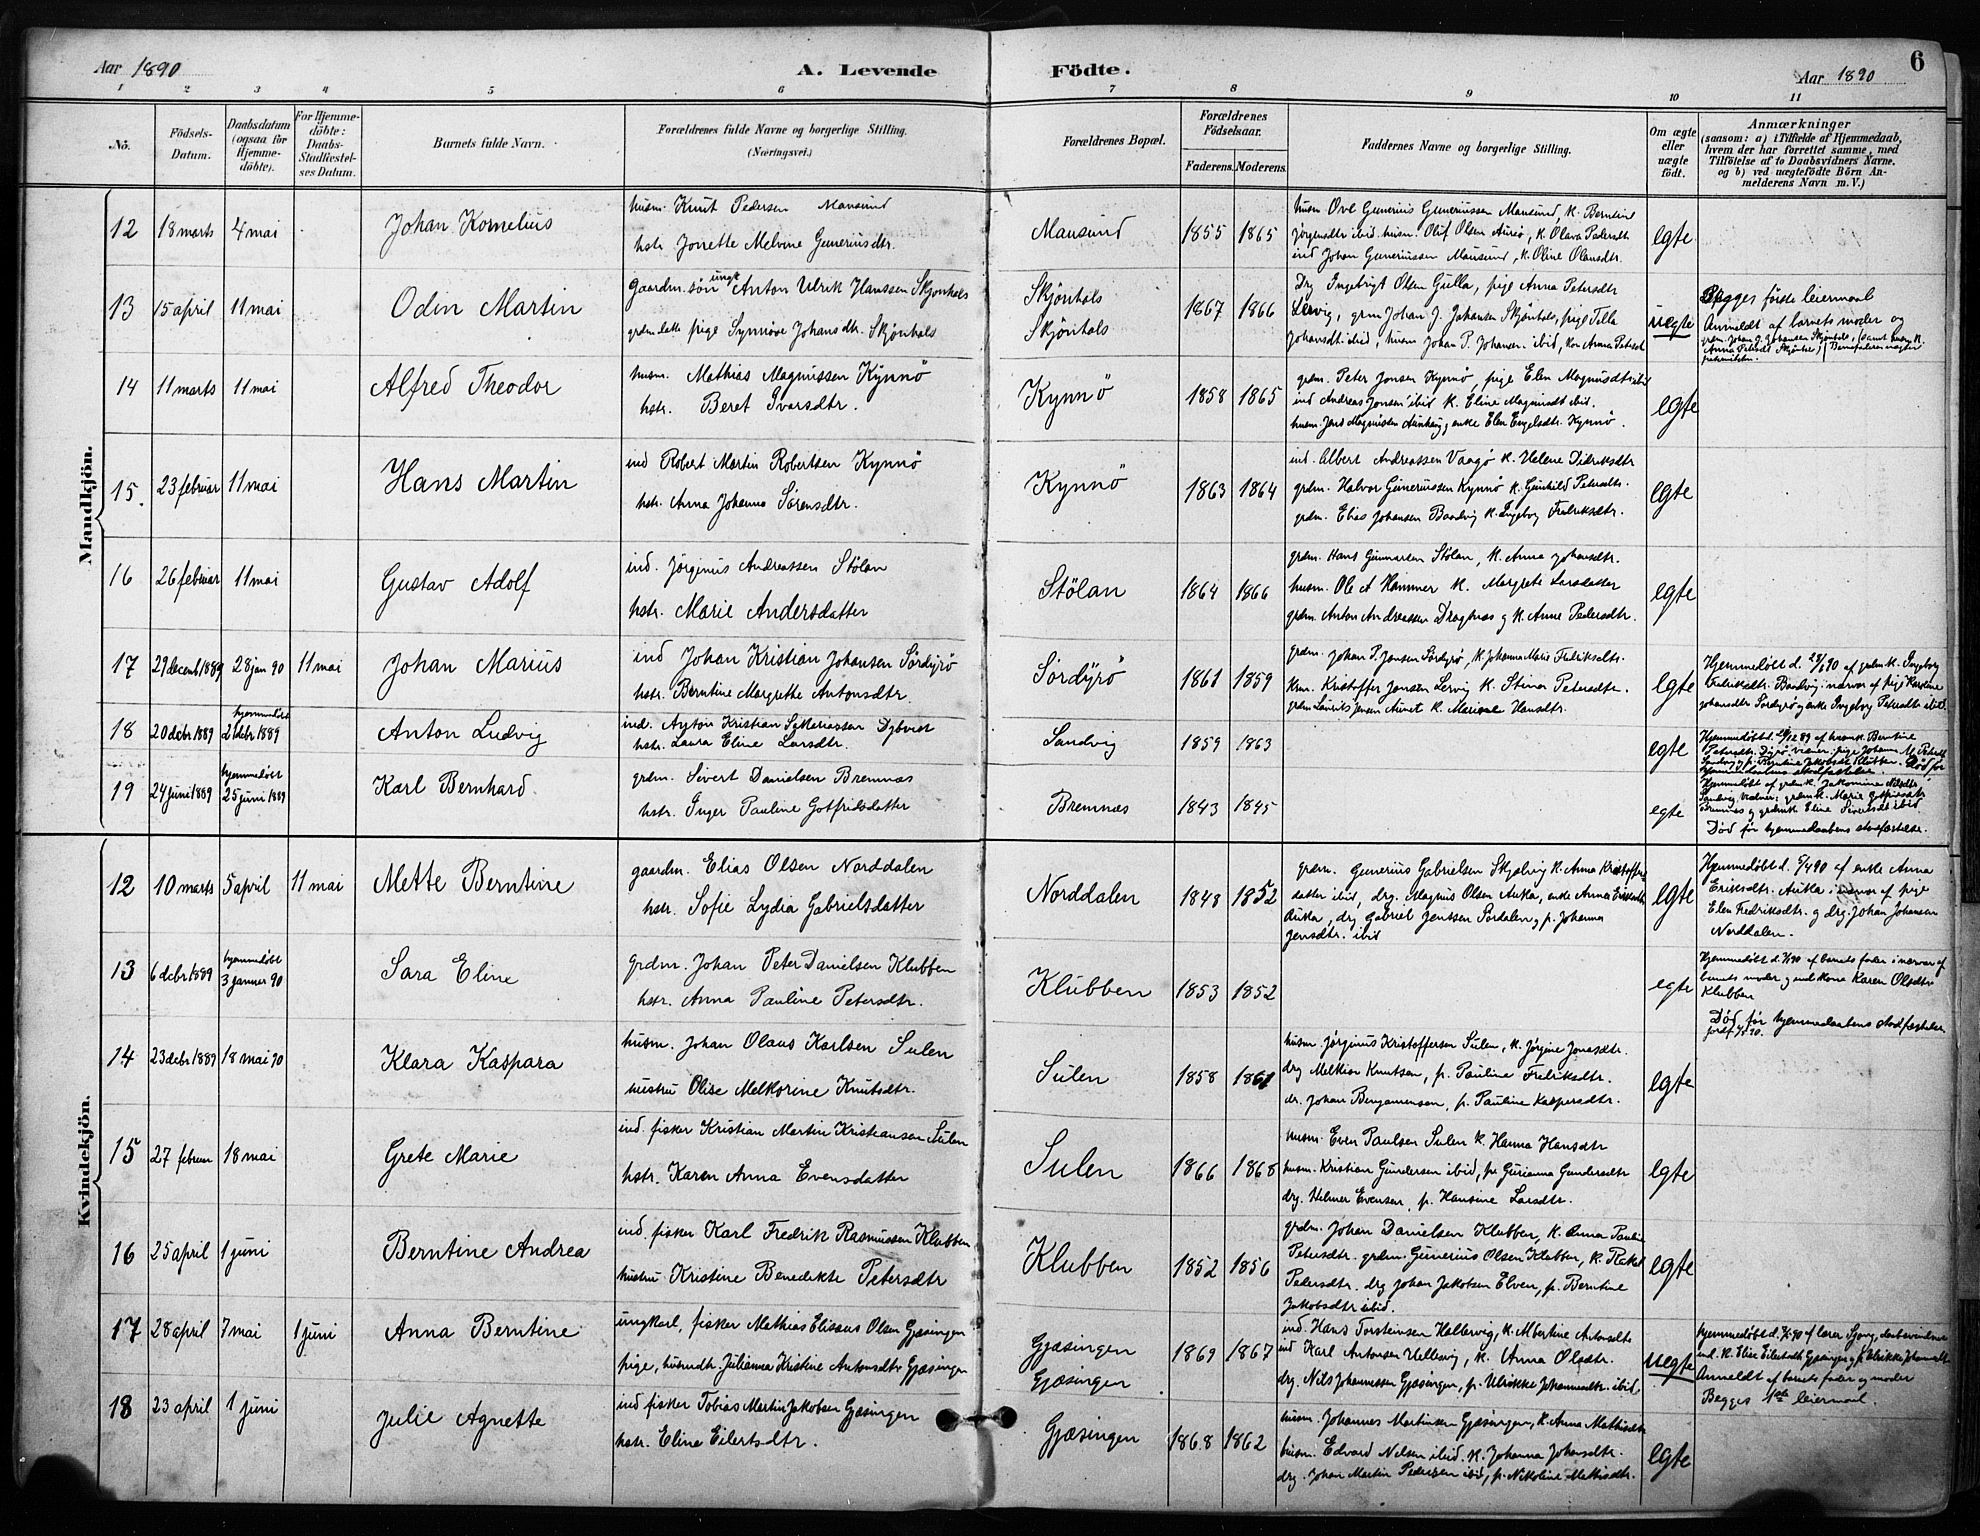 Aar 1890 A. Levende Födte. Aar 1890 6
1 2 3 4 5 6 7 8 9 10 11
No. Födsels-Datum. Daabsdatum (ogsaa for Hjemme-döbte). For Hjemme-döbte: Daabs-Stadfæstel-ses Datum. Barnets fulde Navn. Forældrenes fulde Navne og borgerlige Stilling. (Næringsvei.) Forældrenes Bopæl. Forældrenes Födselsaar. Faderens. Moderens. Faddernes Navne og borgerlige Stilling. Om ægte eller uægte födt. Anmærkninger (saasom: a) i Tilfælde af Hjemmedaab, hvem der har forrettet samme, med Tilföielse af to Daabsvidners Navne, og b) ved uægtefödte Börn An-melderens Navn m. V.)
Mandkjön.
12 18 marts 4 mai Johan Kornelius husm. Knut Pedersen Mausund
hstr. Jonette Melvine Guneriusdtr. Mausund 1855 1865 husm Ove Gunerius Guneriussen Mausund, K. Berntine
Jörgensdtr ibid. husm. Oluf Olsen Aursö, K. Olava Pedersdtr
ind Johan Guneriussen Mausund, K. Oline Olausdtr. egte
13 15 april 11 mai Odin Martin gaardm. sön ungk Anton Ulrik Hanssen Skjönhals
grdm dattr pige Synnöve Johansdtr. Skjönhals Skjönhals
Skjönhals 1867 1866 Drg Ingebrigt Olsen Gulla, pige Anna Petersdtr
Lervig, grm Johan J. Johansen Skjönhals, pige Tilla
Johansdtr ibid, husm Johan P. Johansen ibid, kon Anna Petersdt uegte Begges förste leiermaal
Anmeldt af barnets moder og
grdm. Johan J. Johansen Skjönhals,
14 11 marts 11 mai Alfred Theodor husm. Mathias Magnussen Kynnö
hstr. Beret Ivarsdtr. Kynnö 1858 1865 grdm. Peter Jonsen Kynnö, pige Elen Magnusdtr ibid
ind Andreas Jonsen ibid K. Eline Magnusdt ibid.
husm. Jens Magnussen, enke Elen Engelsdtr. Kynnö. egte
15. 23 februar 11 mai Hans Martin ind Robert Martin Robertsen Kynnö
hstr. Anna Johanna Sörensdtr. Kynnö 1863 1864 ind. Albert Andreassen Vaagö K. Helene Didriksdtr
grdm. Halvor Guneriussen Kynnö K. Gunhild Petersdtr.
grdm. Elias Johansen Baadvig K. Ingeborg Fredriksdtr. egte
16 26 februar 11 mai Gustav Adolf ind. Jörginus Andreassen Stölan
hstr. Marie Andersdatter Stölan 1864 1866 grdm. Hans Gunnarsen Stölan, K. Anna Johansdtr.
husm. Ole A Hammer K. Margrete Larsdatter
grdm. Anton Andreassen Dragsnæs og K. Anne Pedersdtr. egte
17 29 decemb 1889 28 jan 90 11 mai Johan Marius ind Johan Kristian Johansen Sördyrö
hstr. Berntine Margrethe Antonsdtr. Sördyrö 1861 1859 grdm. Johan P. Jensen Sördyrö, K. Johanna Marie Fredriksdtr.
Krm. Kristoffer Jensen Lervig K. Stina Petersdtr.
grdm Laurits Jensen Aunet K. Mariane Hansdtr. egte Hjemmedöbt d. 28/1 90 af grdm K. Ingeborg
Fredriksdtr. Baadvig i nærvær af pige Karoline
Johansdtr Sördyrö og enke Ingeborg Petersdtr ibid.
18 20 dcbr 1889 hjemmedöbt 26 dcbr 1889 Anton Ludvig ind. Anton Kristian Sekariassen Dybvik
hstr. Laura Eline Larsdtr. Sandvig 1859 1863 egte Hjemmedöbt d. 26/12 89 af K. Berntine
Petersdtr. Dyrö pige Johanna
Död før hjemmedaabens stadfæstelse.
19 24 juni 1889 hjemmedöbt 25 juni 1889 Karl Bernhard. grdm. Sivert Danielsen Bremnæs
hstr. Inger Pauline Gotfridsdatter Bremnæs 1843 1845 egte Hjemmedöbt af grdm K. Jakomina Nilsdtr
Sandvig, vidner: grdm K. Marie Gotfridsdtr
Bremnæs og grdm K Eline Sivertsdt ibid
Död för hjemmedaabens stadfæstelse.
Kvindekjön.
12 10 marts 5 april 11 mai Mette Berntine gaardm. Elias Olsen Norddalen
hstr. Sofie Lydia Gabrielsdatter Norddalen 1848 1852 grdm. Gunerius Gabrielsen Skjølvig K. Anna Kristoffers
datter ibid, drg. Magnus Olsen Auka, enke Anna Eriksdtr
Auka, drg Gabriel Jentsen Sördalen og p. Johanna
Jensdtr. ibid egte Hjemmedöbt d. 5/4 90 af enke Anna
Eriksdtr. Auka i nærvær af pige
Elen Fredriksdtr. og drg. Johan Johansen
Norddalen.
13 6 dcbr 1889 hjemmedöbt 3 januar 90 Sara Eline grdm. Johan Peter Danielsen Klubben
hstr. Anna Pauline Petersdtr. Klubben 1853 1852 egte Hjemmedöbt d. 3/1 90 af barnets fader i nærvær af
barnets moder og ind kone Karen Olsdtr
Klubben
Död för hjemmedaabens stadfæstelse
14 23 dcbr 1889 18 mai 90 Klara Kaspara husm. Johan Olaus Karlsen Sulen
hustru Olise Melkorine Knutsdtr. Sulen 1858 1861 husm. Jörginus Kristoffersen Sulen, K. Jörgine Jonasdtr.
drg Melkior Knutsen, p. Pauline Fredriksdtr.
dr. Johan Benjaminsen, p. Pauline Kaspersdtr. egte
15 27 februar 18 mai Grete Marie ind. fisker Kristian Martin Kristiansen Sulen
hstr. Karen Anna Evensdatter Sulen 1866 1868 husm. Even Paulsen Sulen K. Hanna Hansdtr
husm. Kristian Gundersen ibid, p. Gurianna Gundersdtr
drg. Helmer Evensen, p. Hansine Larsdtr. egte
16 25 april 1 juni Berntine Andrea ind. fisker Karl Fredrik Rasmussen Klubben
hustru Kristine Benedikte Petersdtr Klubben 1852 1856 grdm. Johan Danielsen Klubben, K. Anna Pauline
Petersdtr. grdm. Gunerius Olsen Klubben, K. Rakel
Pedersdtr. drg Johan Jakobsen Elven, p. Berntine
Jakobsdtr ibid. egte
17 28 april 7 mai 1 juni Anna Berntine ungkarl, fisker Mathias Elisæus Olsen Gjæsingen
pige, husmdtr. Julianna Kristine Antonsdtr Gjæsingen Gjæsingen
Gjæsingen 1869 1867 ind. Hans Torsteinsen Hallervig, K. Albertine Antonsdtr
ind Karl Antonsen Vellesvig, K. Anna Olsdtr.
drg. Nils Johannessen Gjæsingen, p. Ulrikke Johannesdtr. ibid uegte hjemmedöbt d. 7/5 90 af lærer Sjong, daabsvidner
ind. K. Elise Eilertsdtr Gjæsingen og p. Ulrikke Johannesdtr
Anmeldt af barnets fader og moder
Begges 1ste leiermaal.
18 23 april 1 juni Julie Agnette ind fisker Tobias Martin Jakobsen Gjæsingen
hstr. Eline Eilertsdtr. Gjæsingen 1868 1862 husm. Johannes Martinsen Gjæsingen, K. Anna Mathisdtr
husm. Edvard Nilsen ibid. K. Johanna Johansdtr.
drg. Johan Martin Pedersen ibid, p. Nikoline Mathisdtr. egte